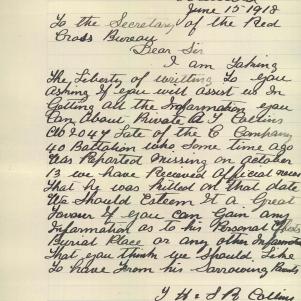 June 15 1918
To the Secretary of the Red
Cross Bureau
Dear Sir
I am Taking
The Liberty of writting To you
Asking If you will assist us In
Getting all the Information you
Can About Private A Y Collins
2047 Late of the C Company
40 Battalion who Some time ago
Was Reported Missing on october
13 we have Received official news
That he was Killed on that date
We Should Esteem It a Great
Favour If you Can Gain any
Information as to his Personal Effects
Burial Place or any other Information
That you think we Should Like
To have From his Sorrowing Parents
Y H & S B Collins